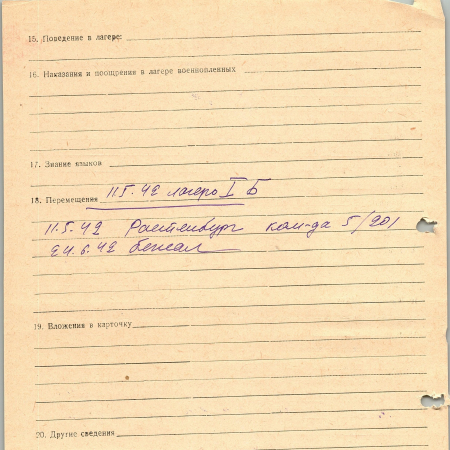 15. Поведение в лагере:
16. Наказания и поощрения в лагере военнопленных
17. Знание языков
18. Перемещения 11.5.42 лагерь I Б
11.5.42 Растенбург ком-да 5/201
24.6.42 бежал
19. Вложения в карточку
20. Другие сведения